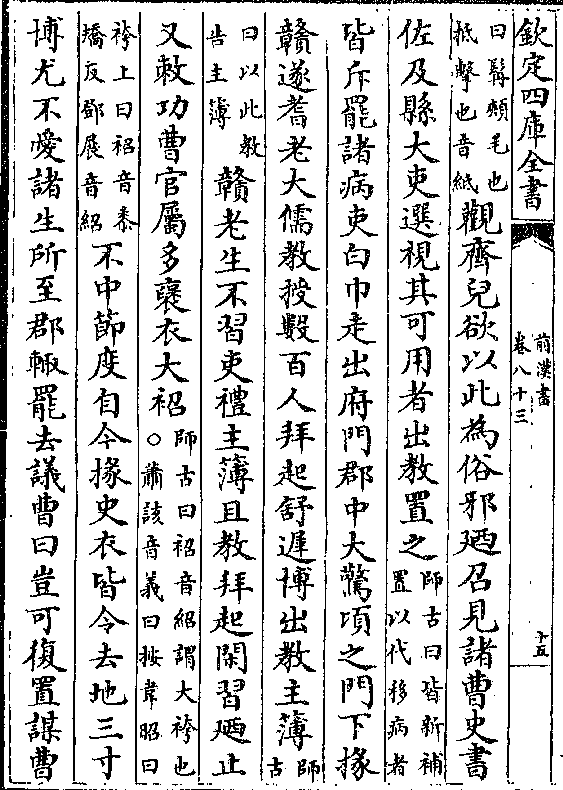 欽定四庫全書
前漢書
卷八十三
十五
曰髯頰毛也
抵擊也音紙
觀齊兒欲以此為俗邪廼召見諸曹史書
佐及縣大吏選視其可用者出教置之
師古曰皆新補
置以代移病者
皆斥罷諸病吏白巾走出府門郡中大驚頃之門下掾
贛遂耆老大儒教授數百人拜起舒遲博出教主薄
師
古
曰以此教
告主薄
贛老生不習吏禮主薄且教拜起閑習廼止
又敕功曹官屬多襃衣大袑
師古曰袑音紹謂大袴也
○蕭該音義曰按韋昭曰
袴上曰袑音泰
矯反鄧展音紹
不中節度自今掾史衣皆令去地三寸
博尤不愛諸生所至郡輒罷去議曹曰豈可復置謀曹